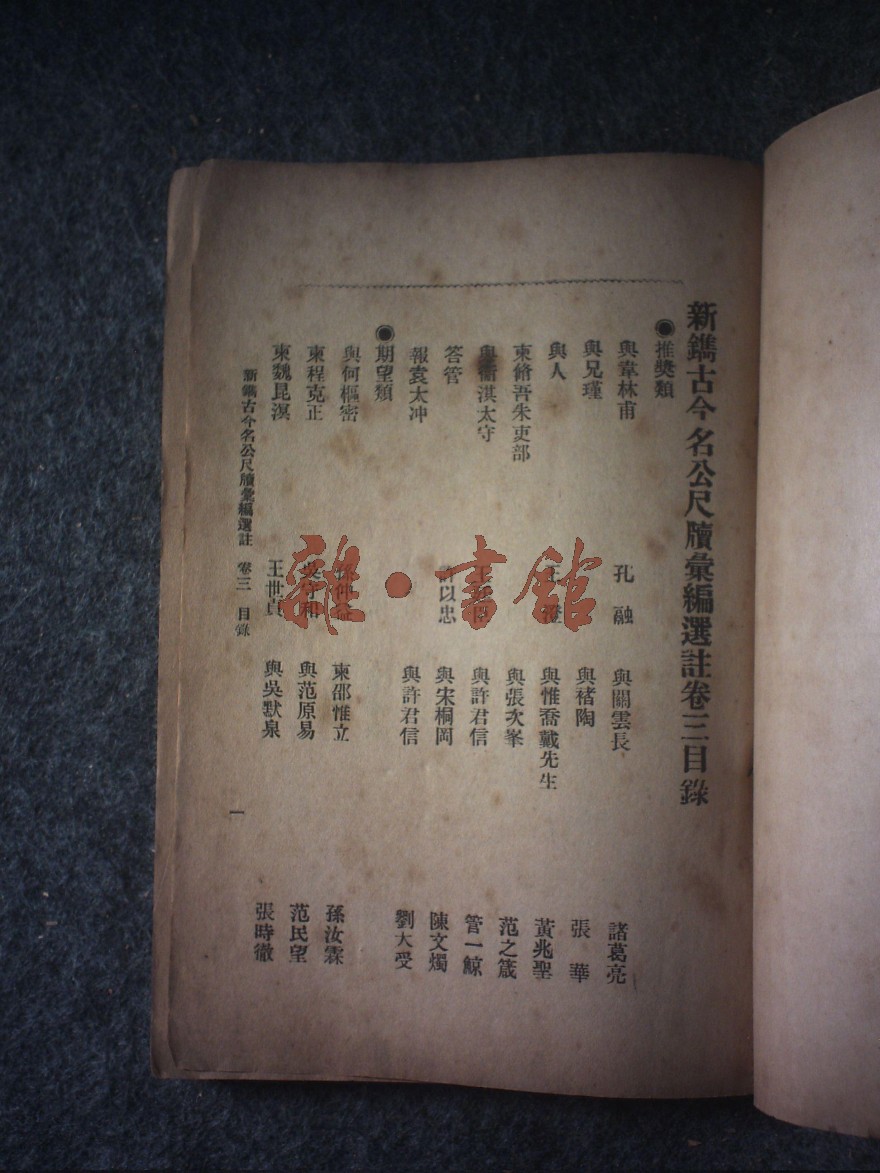 新鐫古今名公尺牘彙編選註卷三目錄
●推獎類
與韋林甫 孔融 與關雲長 諸葛亮
與兄瑾 與褚陶 張華
與人 王澄 與惟喬戴先生 黃兆聖
柬脩吾朱吏部 與張次峯 范之箴
與衛淇太守 與許君信 管一鯨
答管 許以忠 與宋桐岡 陳文燭
報袁太冲 與許君信 劉大受
●期望類
與何樞密 孫仲益 柬邵惟立 孫汝霖
柬程克正 吳守和 與范原易 范民望
柬魏昆溟 王世貞 與吳默泉 張時徹
新鐫古今名公尺牘彙編選註 卷三 目錄 一
雜·書館